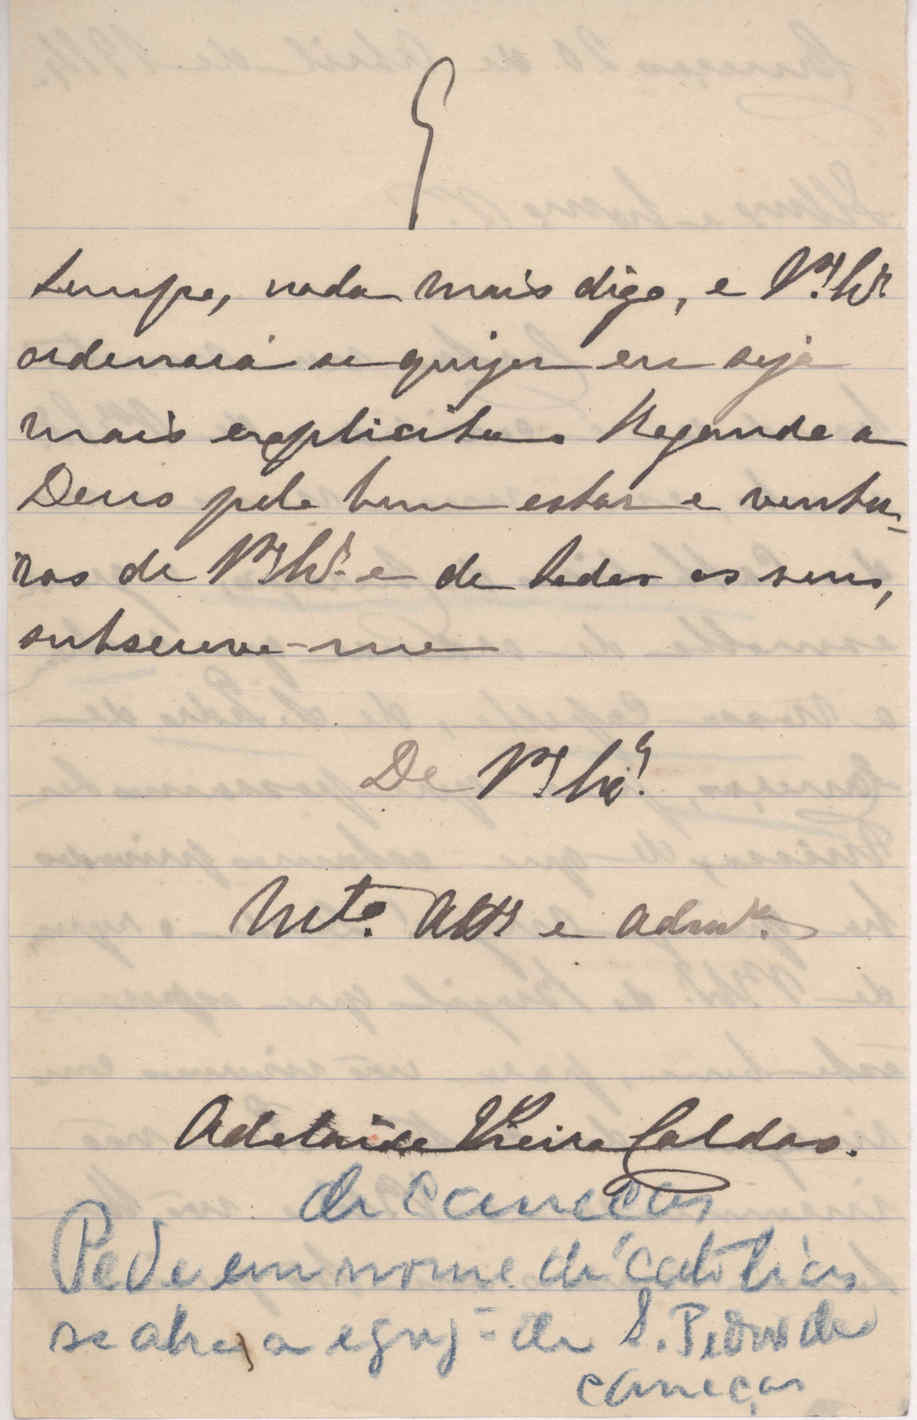 tempo, nada mais digo, e V.ª Ex.ª
ordenará se quizer eu seja
mais explicita. Rogando a
Deus pelo bem estar e ventu-
ras de V.ª Ex.ª e de todos os seus,
subscreve-me
De V.ª Ex.ª
Mt.º Att.ª e Admr.ª
Adelaide Vieira Caldas.
de caneças
Pede em nome de catolicos
se abra a egrej- de S. Pedro de
caneças